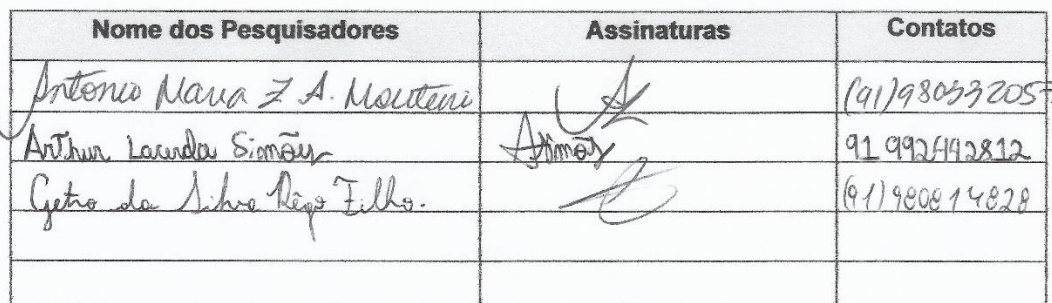 Nome dos Pesquisadores Assinaturas Contatos
Antonio Maria Z A. Monteiro (91)98033205
Arthur Lacerda Simões ASimões 91 992442812
Getro da Silva Rêgo Filho. (91) 980814828